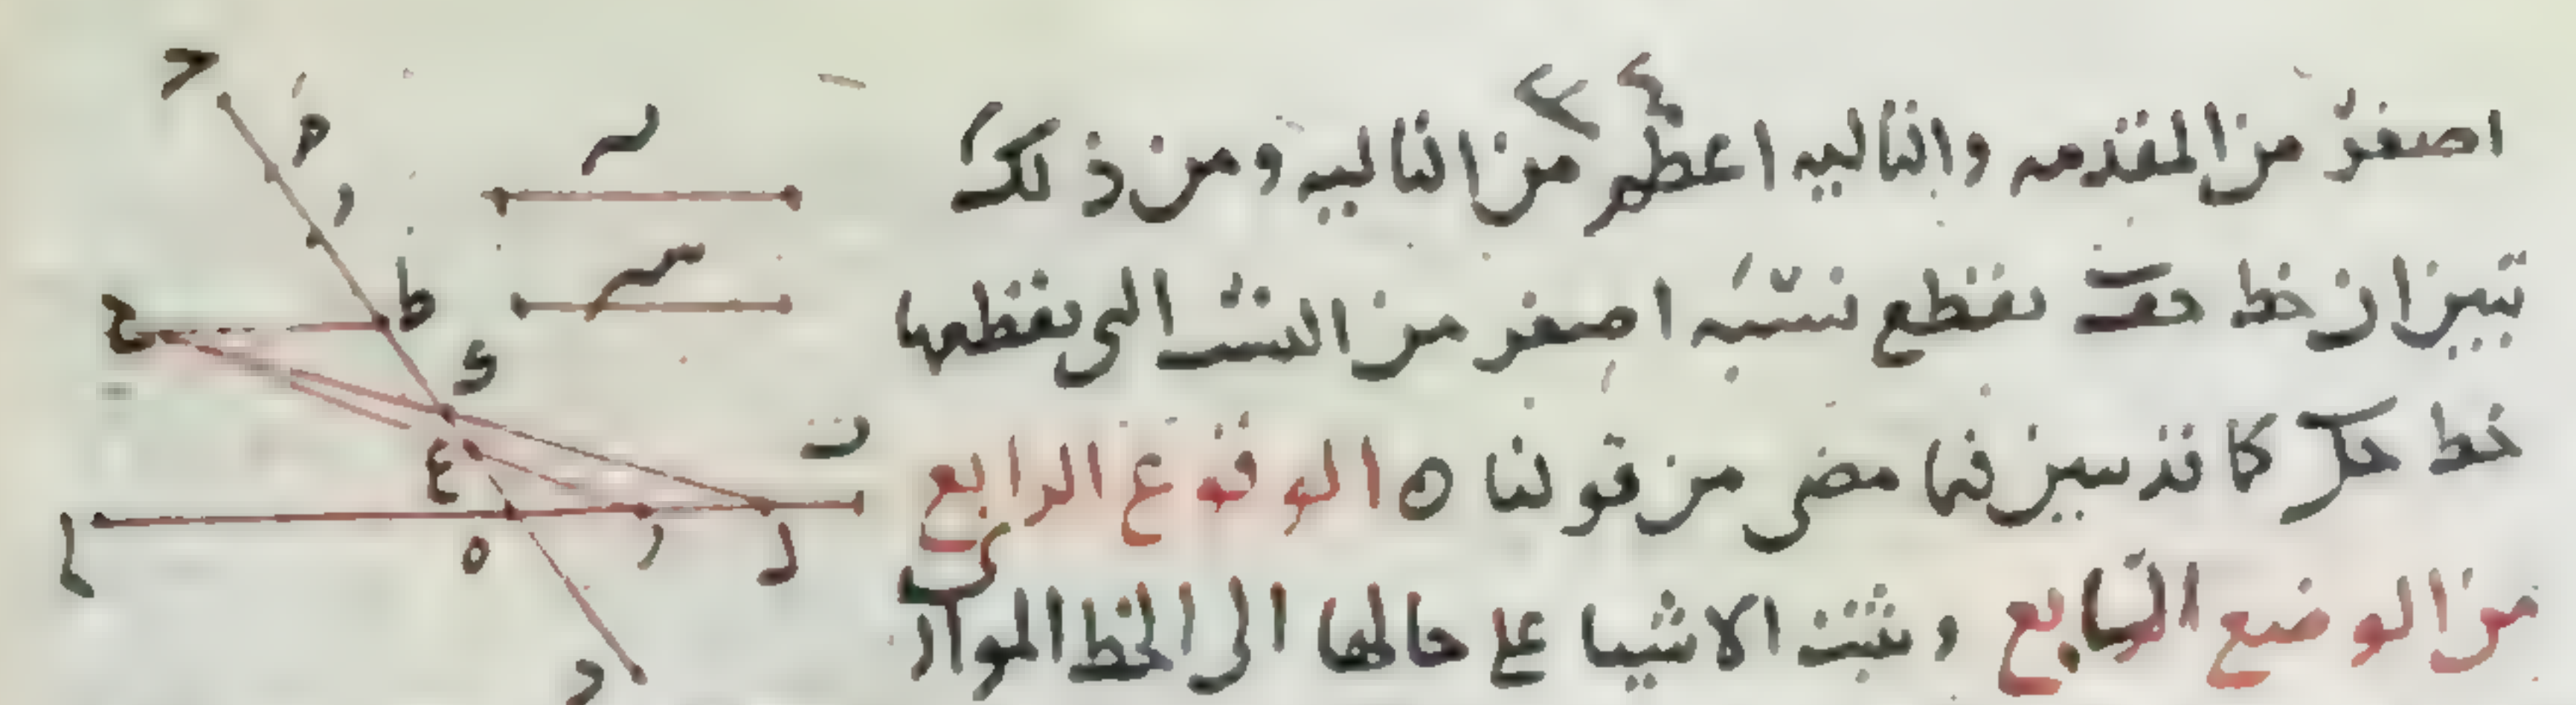 اصغر من المقدمه والتاليه اعظم من التاليه ومن ذلك
تبين ان خط حڡ يقطع نسبه اصغر من النسبه التى يقطعها
خط حكل كما قد تبين فيما مضى من قولنا ه الوقوع الرابع
من الوضع السابع وتثبت الاشيا على حالها الى الخط الموازى
ح
م
ر
ں
س
ط
ح
ى
ع
ب
ا
ه
ر
ل
د